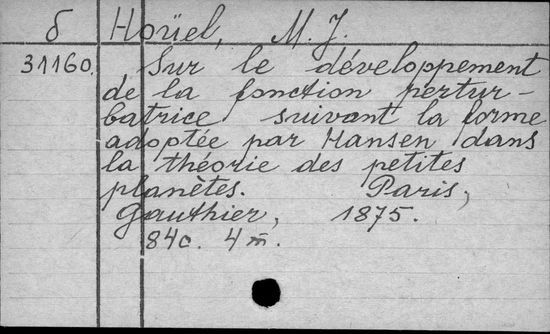 б Hoüel, M. J.
31160. Sur le développement
de la fonction pertur-
batrice suivant la forme
adoptée par Hansen dans
la théorie des petites
planètes. Paris,
Gauthier, 1875.
84c. 4m̅.